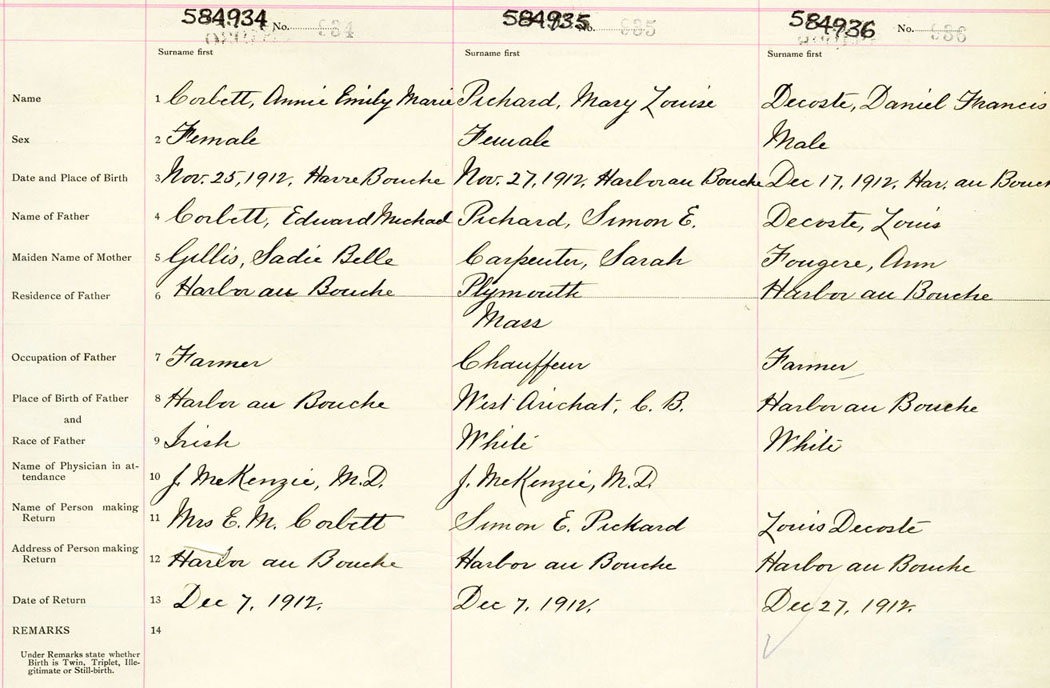 584934 No. 934 584935 No. 935 584936 No. 936
Surname first Surname first Surname first
Name 1 Corbett, Annie Emily Marie Pichard, Mary Louise Decoste, Daniel Francis
Sex 2 Female Female Male
Date and Place of Birth 3 Nov. 25, 1912, Havre Bouche Nov. 27, 1912, Harbor au Bouche Dec 17, 1912, Har. au Bouch
Name of Father 4 Corbett, Edward Michael Pichard, Simon E. Decoste, Louis
Maiden Name of Mother 5 Gillis, Sadie Belle Carpenter, Sarah Fougere, Ann
Residence of Father 6 Harbor au Bouche Plymouth Harbor au Bouche
Mass
Occupation of Father 7 Farmer Chauffeur Farmer
Place of Birth of Father 8 Harbor au Bouche West Arichat, C. B. Harbor au Bouche
and
Race of Father 9 Irish White White
Name of Physician in at-
tendance 10 J. McKenzie, M.D. J. McKenzie, M.D.
Name of Person making
Return 11 Mrs E. M. Corbett Simon E. Pickard Louis Decoste
Address of Person making
Return 12 Harbor au Bouche Harbor au Bouche Harbor au Bouche
Date of Return 13 Dec 7, 1912. Dec 7, 1912. Dec 27, 1912.
REMARKS 14
Under Remarks state whether
Birth is Twin, Triplet, Ille-
gitimate or Still-birth.